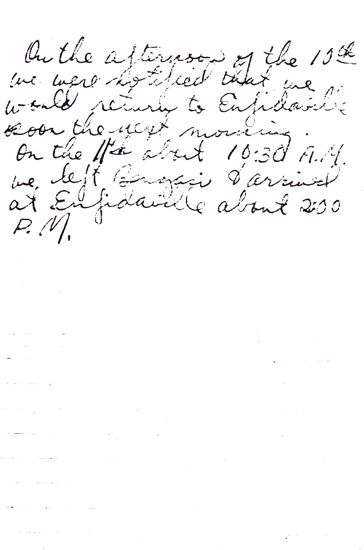 On the afternoon of the 10th
we were notified that we
would return to Enfidaville
soon the next morning.
On the 11th about 10:30 A.M.
we left Bengasi & arrived
at Enfidaville about 2:00
P.M.